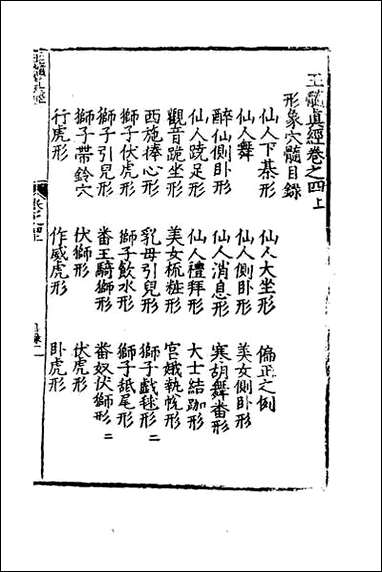 玉髓真經卷之四上
形象穴髓目錄
仙人下碁形 仙人大坐形 偏正之例
仙人舞 仙人側卧形 美女側卧形
醉仙側卧形 仙人消息形 寒胡舞畨形
仙人蹺足形 仙人禮拜形 大士結跏形
觀音跪坐形 美女梳粧形 宮娥執帨形
西施捧心形 乳母引兒形 獅子戲毬形二
獅子伏虎形 獅子飲水形 獅子舐尾形
獅子引兒形 畨王騎獅形 畨奴伏獅形二
獅子帶鈴穴 伏獅形 伏虎形
行虎形 作威虎形 卧虎形